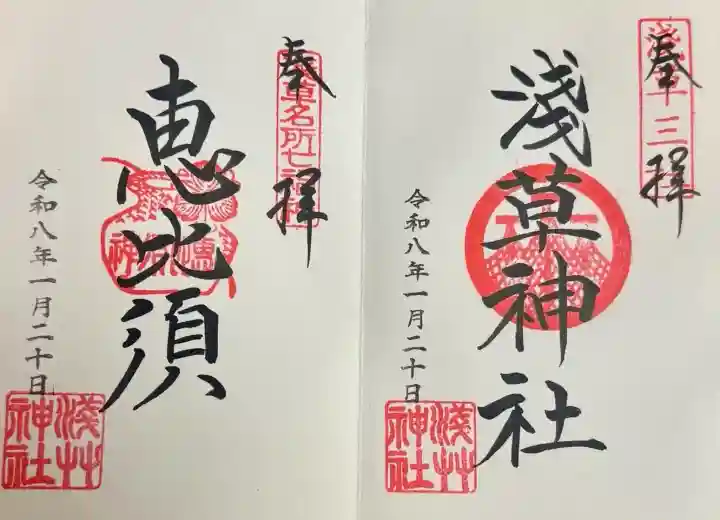 奉拝
淺草神社
令和八年一月二十日
淺草神社
奉拝
浅草名所七福神
恵比須
令和八年一月二十日
淺草神社